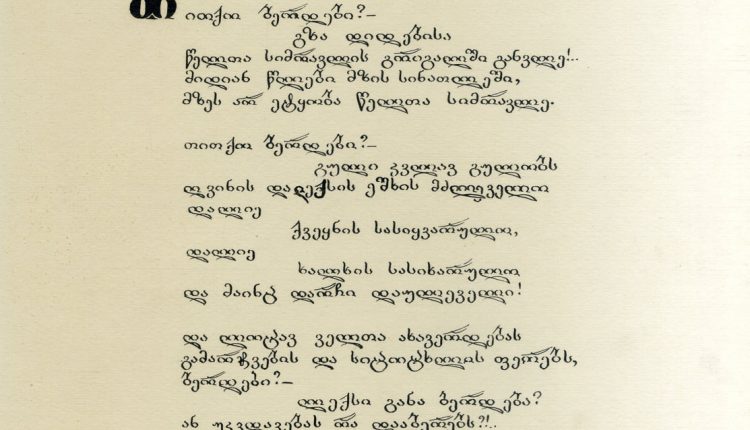 თითქო ბერდები?—
გზა დიდებისა
წელთა სიმრავლის გრიგალში განვლე!..
მიდიან წლები მზის სინათლეში,
მზეს არ ეტყობა წელთა სიმრავლე.
თითქო ბერდები?—
გული კვლავ გულობს
ღვინის და ლექსის ეშხის მძლეველო
დალიე
ქვეყნის სასიყვარულო,
დალიე
ხალხის სასიხარულო
და მაინც დარჩი დაულეველი!
და ლოცავ ველთა ახავერდებას
გამარჯვების და სიცოცხლის ფერებს,
ბერდები?—
ლექსი განა ბერდება?
ან უკვდავებას რა დააბერებს?!..